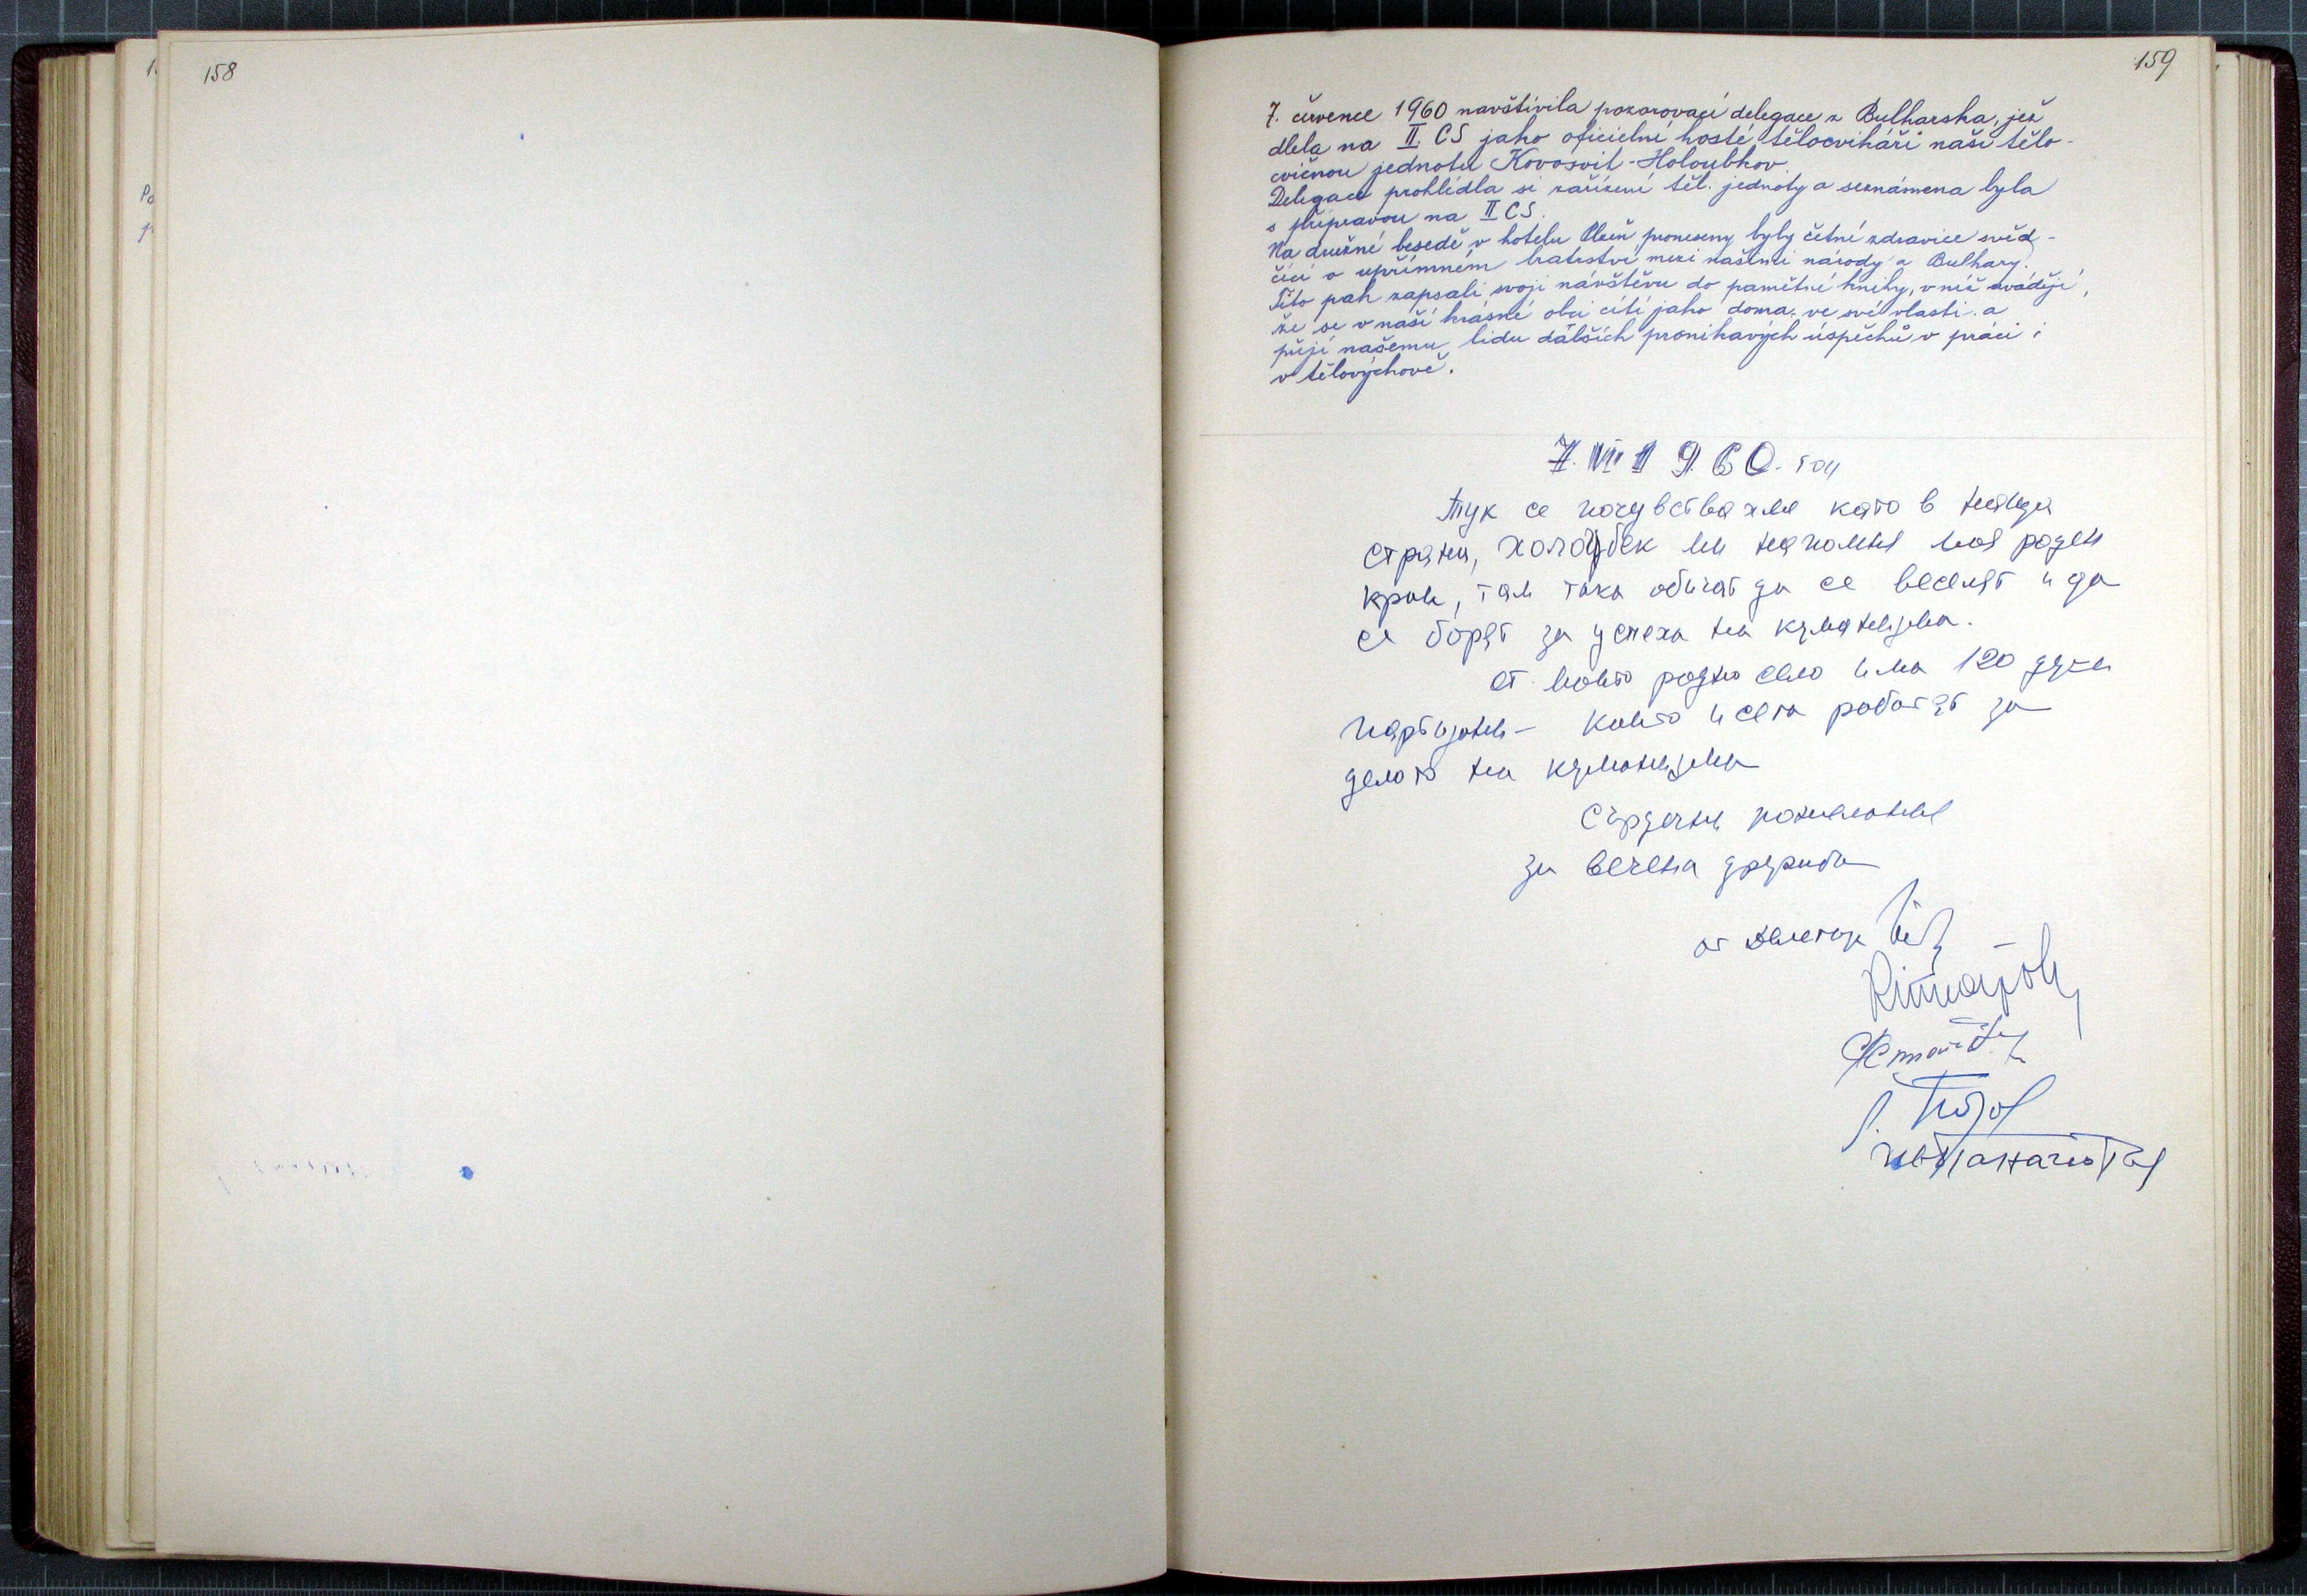 158
159
7. července 1960 navštívila pozorovací delegace z Bulharska, jež
dlela na II. CS jako oficielní hosté tělocvikáři naši tělo-
cvičnou jednotu Kovosvit-Holoubkov.
Delegace prohlédla si zařízení těl. jednoty a seznámena byla
s přípravou na II CS.
Na družné besedě v hotelu Plzeň proneseny byly četné zdravice svěd-
čící o upřímném bratrství mezi našimi národy a Bulhary.
Tito pak zapsali svoji návštěvu do pamětní knihy, v níž uvádějí,
že se v naší krásné obci cítí jako doma, ve své vlasti a
přejí našemu lidu dalších pronikavých úspěchů v práci i
v tělovýchově.
7. VII 1960. год
Тук се почувствахме като в наша
страна, Холоубек ми напомня моя роден
край, там така обичат да се веселят и да
се борят за успеха на кумунизма.
От моето родно село има 120 души
партизани — които и сега работят за
делото на кумунизма
Сърдечни пожелания
за вечна дружба
от